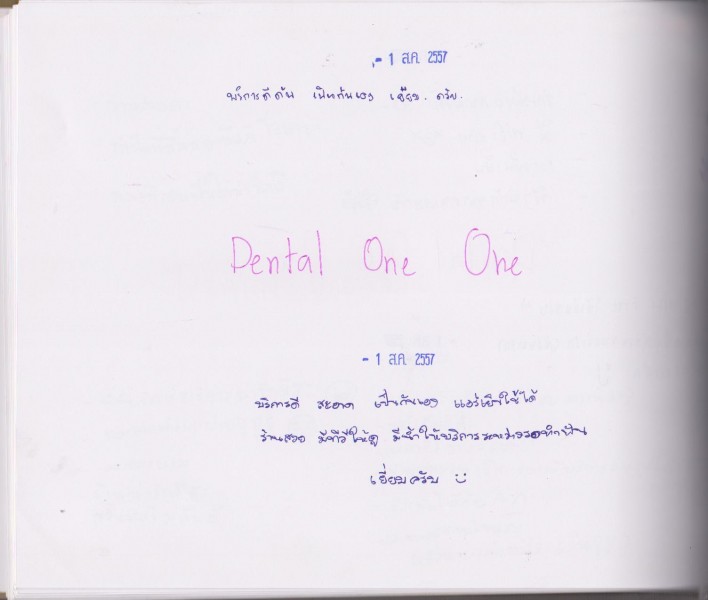 - 1 ส.ค. 2557
บริการดีด้น เป็นกันเอง เยี่ยม. ครับ.
Dental One One
- 1 ส.ค. 2557
บริการดี สะอาด เป็นกันเอง แอร์เย็นใช้ได้
ร้านสวย มีทีวีให้ดู มีน้ำให้บริการระหว่างรอทำฟัน
เยี่ยมครับ